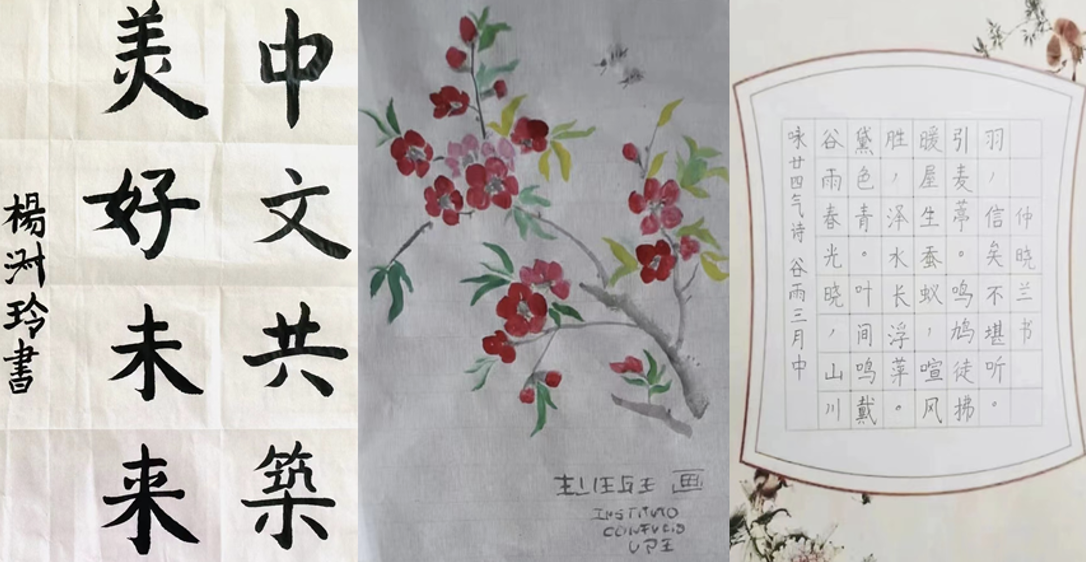 中文共築
美好未来
楊玲書
画
INSTITUTO
CONFUCIO
UPE
咏廿四气诗 谷雨三月中
谷雨春光晓，山川
黛色青。叶间鸣戴
胜，泽水长浮萍。
暖屋生蚕蚁，喧风
引麦葶。鸣鸠徒拂
羽，信矣不堪听。
仲晓兰书